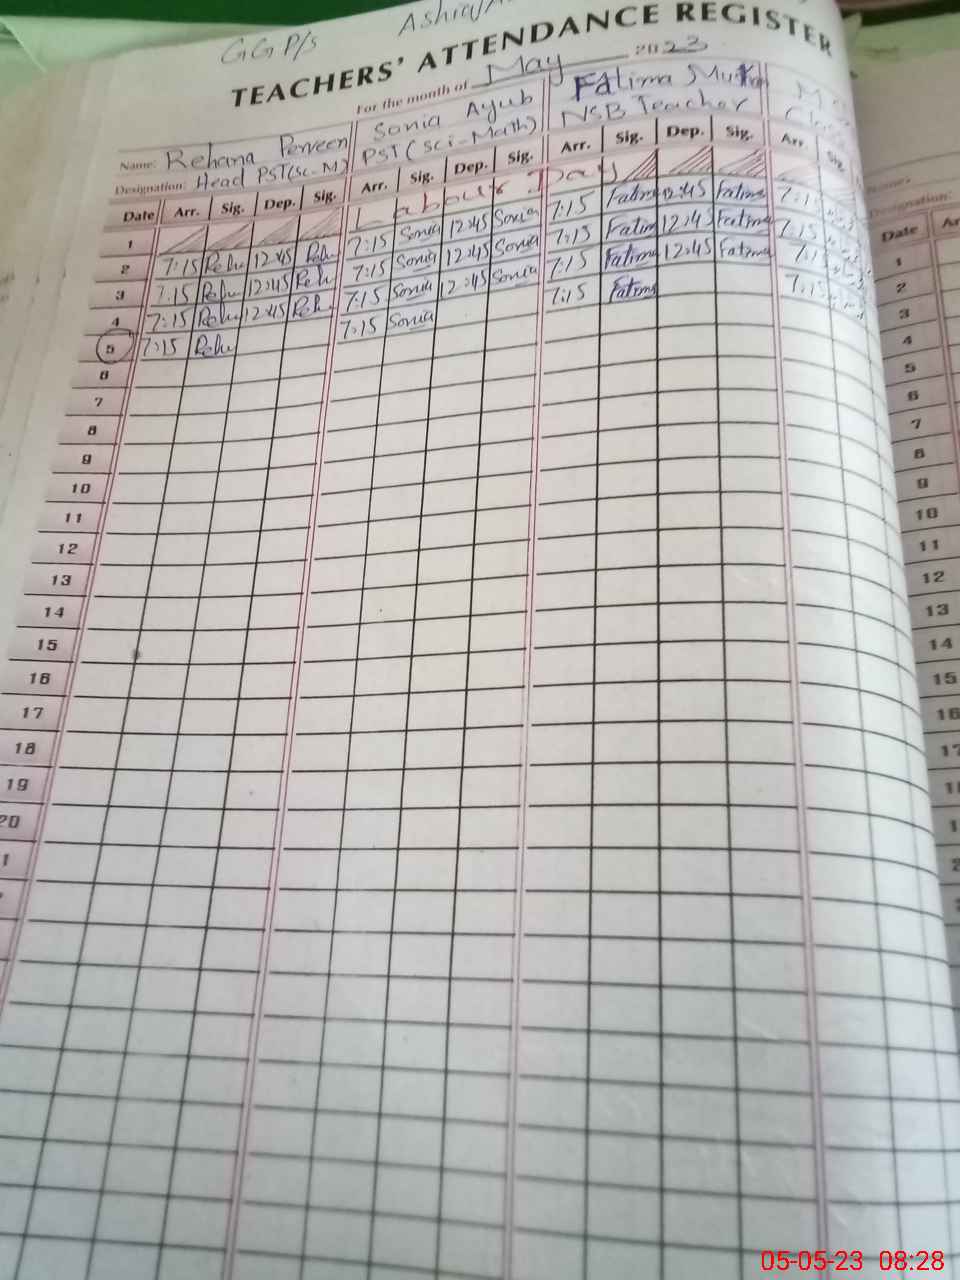 GGP/S
TEACHERS' ATTENDANCE REGISTER
For the month of May 2023
Name: Rehana Perveen Sonia Ayub Fatima
Designation: Head PST(Sc-M) PST (Sci-Math) NSB Teacher
Date Arr. Sig. Dep. Sig. Arr. Sig. Dep. Sig. Arr. Sig. Dep. Sig. Arr. Sig.
1 Labour Day
2 7:15 Rehu 12:45 Rehu 7:15 Sonia 12:45 Sonia 7:15 Fatima 12:45 Fatima 7:1
3 7:15 Rehu 12:45 Rehu 7:15 Sonia 12:45 Sonia 7:15 Fatima 12:45 Fatima 7:15
4 7:15 Rehu 12:45 Rehu 7:15 Sonia 12:45 Sonia 7:15 Fatima 12:45 Fatima 7:1
5 7:15 Rehu 7:15 Sonia 7:15 Fatima 7:15
6
7
8
9
10
11
12
13
14
15
16
17
18
19
20
1
Name:
Designation:
Date Ar
1
2
3
4
5
6
7
8
9
10
11
12
13
14
15
16
17
05-05-23 08:28